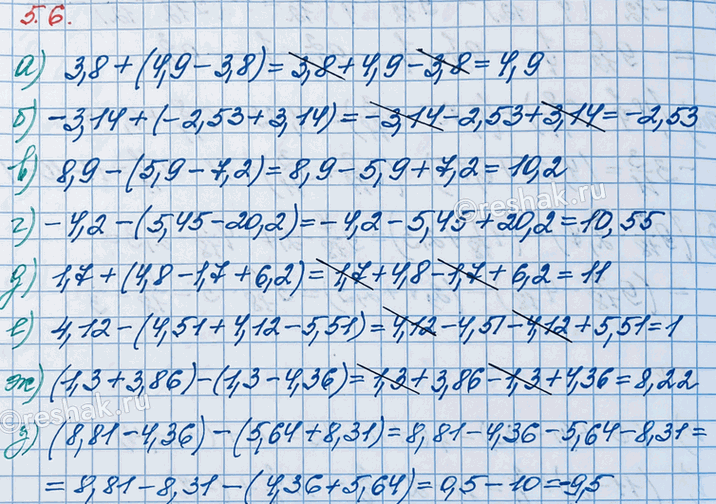 5.6.
а) 3,8 + (4,9 − 3,8) = 3,8 + 4,9 − 3,8 = 4,9
б) −3,14 + (−2,53 + 3,14) = −3,14 − 2,53 + 3,14 = −2,53
в) 8,9 − (5,9 − 7,2) = 8,9 − 5,9 + 7,2 = 10,2
г) −4,2 − (5,45 − 20,2) = −4,2 − 5,45 + 20,2 = 10,55
д) 1,7 + (4,8 − 1,7 + 6,2) = 1,7 + 4,8 − 1,7 + 6,2 = 11
е) 4,12 − (4,51 + 4,12 − 5,51) = 4,12 − 4,51 − 4,12 + 5,51 = 1
ж) (1,3 + 3,86) − (1,3 − 4,36) = 1,3 + 3,86 − 1,3 + 4,36 = 8,22
з) (8,81 − 4,36) − (5,64 + 8,31) = 8,81 − 4,36 − 5,64 − 8,31 =
= 8,81 − 8,31 − (4,36 + 5,64) = 0,5 − 10 = −9,5
©reshak.ru
©reshak.ru